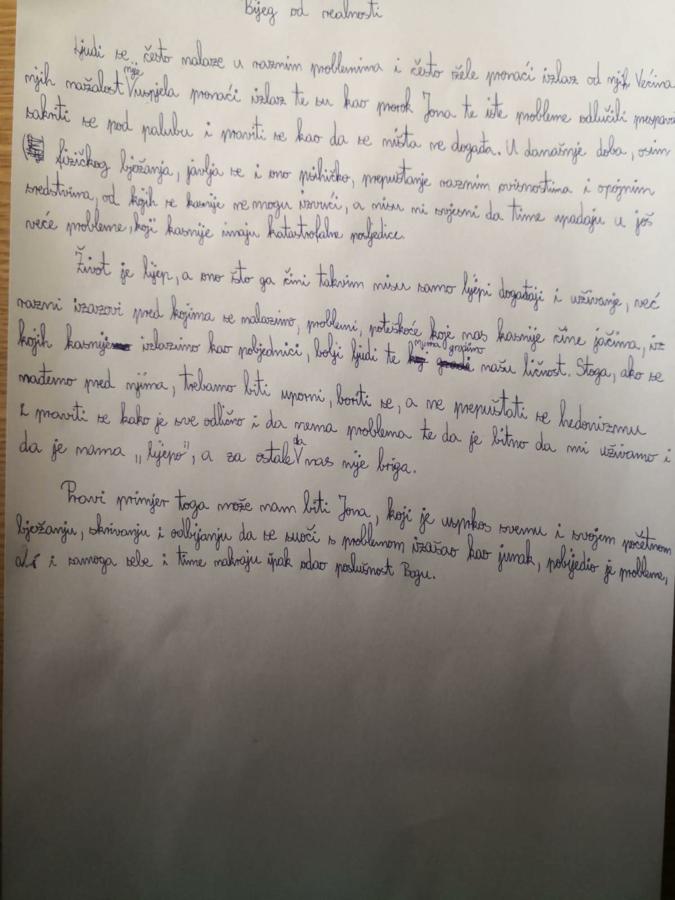 Bijeg od realnosti
Ljudi se često nalaze u raznim problemima i često žele pronaći izlaz od njih. Većina
njih nažalost nije uspjela pronaći izlaz te su kao prorok Jona te iste probleme odlučili prespavati
sakriti se pod palubu i praviti se kao da se ništa ne događa. U današnje doba, osim
fizičkog bježanja, javlja se i ono psihičko, prepuštanje raznim ovisnostima i opojnim
sredstvima, od kojih se kasnije ne mogu izvući, a nisu ni svjesni da time upadaju u još
veće probleme, koji kasnije imaju katastrofalne posljedice.
Život je lijep, a ono što ga čini takvim nisu samo ljepi događaji i uživanje, već
razni izazovi pred kojima se nalazimo, problemi, poteškoće koje nas kasnije čine jačima, iz
kojih kasnije izlazimo kao pobjednici, bolji ljudi te njima gradimo našu ličnost. Stoga, ako se
nađemo pred njima, trebamo biti uporni, boriti se, a ne prepuštati se hedonizmu
i praviti se kako je sve odlično i da nema problema te da je bitno da mi uživamo i
da je nama „lijepo”, a za ostale da nas nije briga.
Pravi primjer toga može nam biti Jona, koji je usprkos svemu i svojem početnom
bježanju, skrivanju i odbijanju da se suoči s problemom izašao kao junak, pobijedio je probleme,
ali i samoga sebe i time nakraju ipak odao poslušnost Bogu.